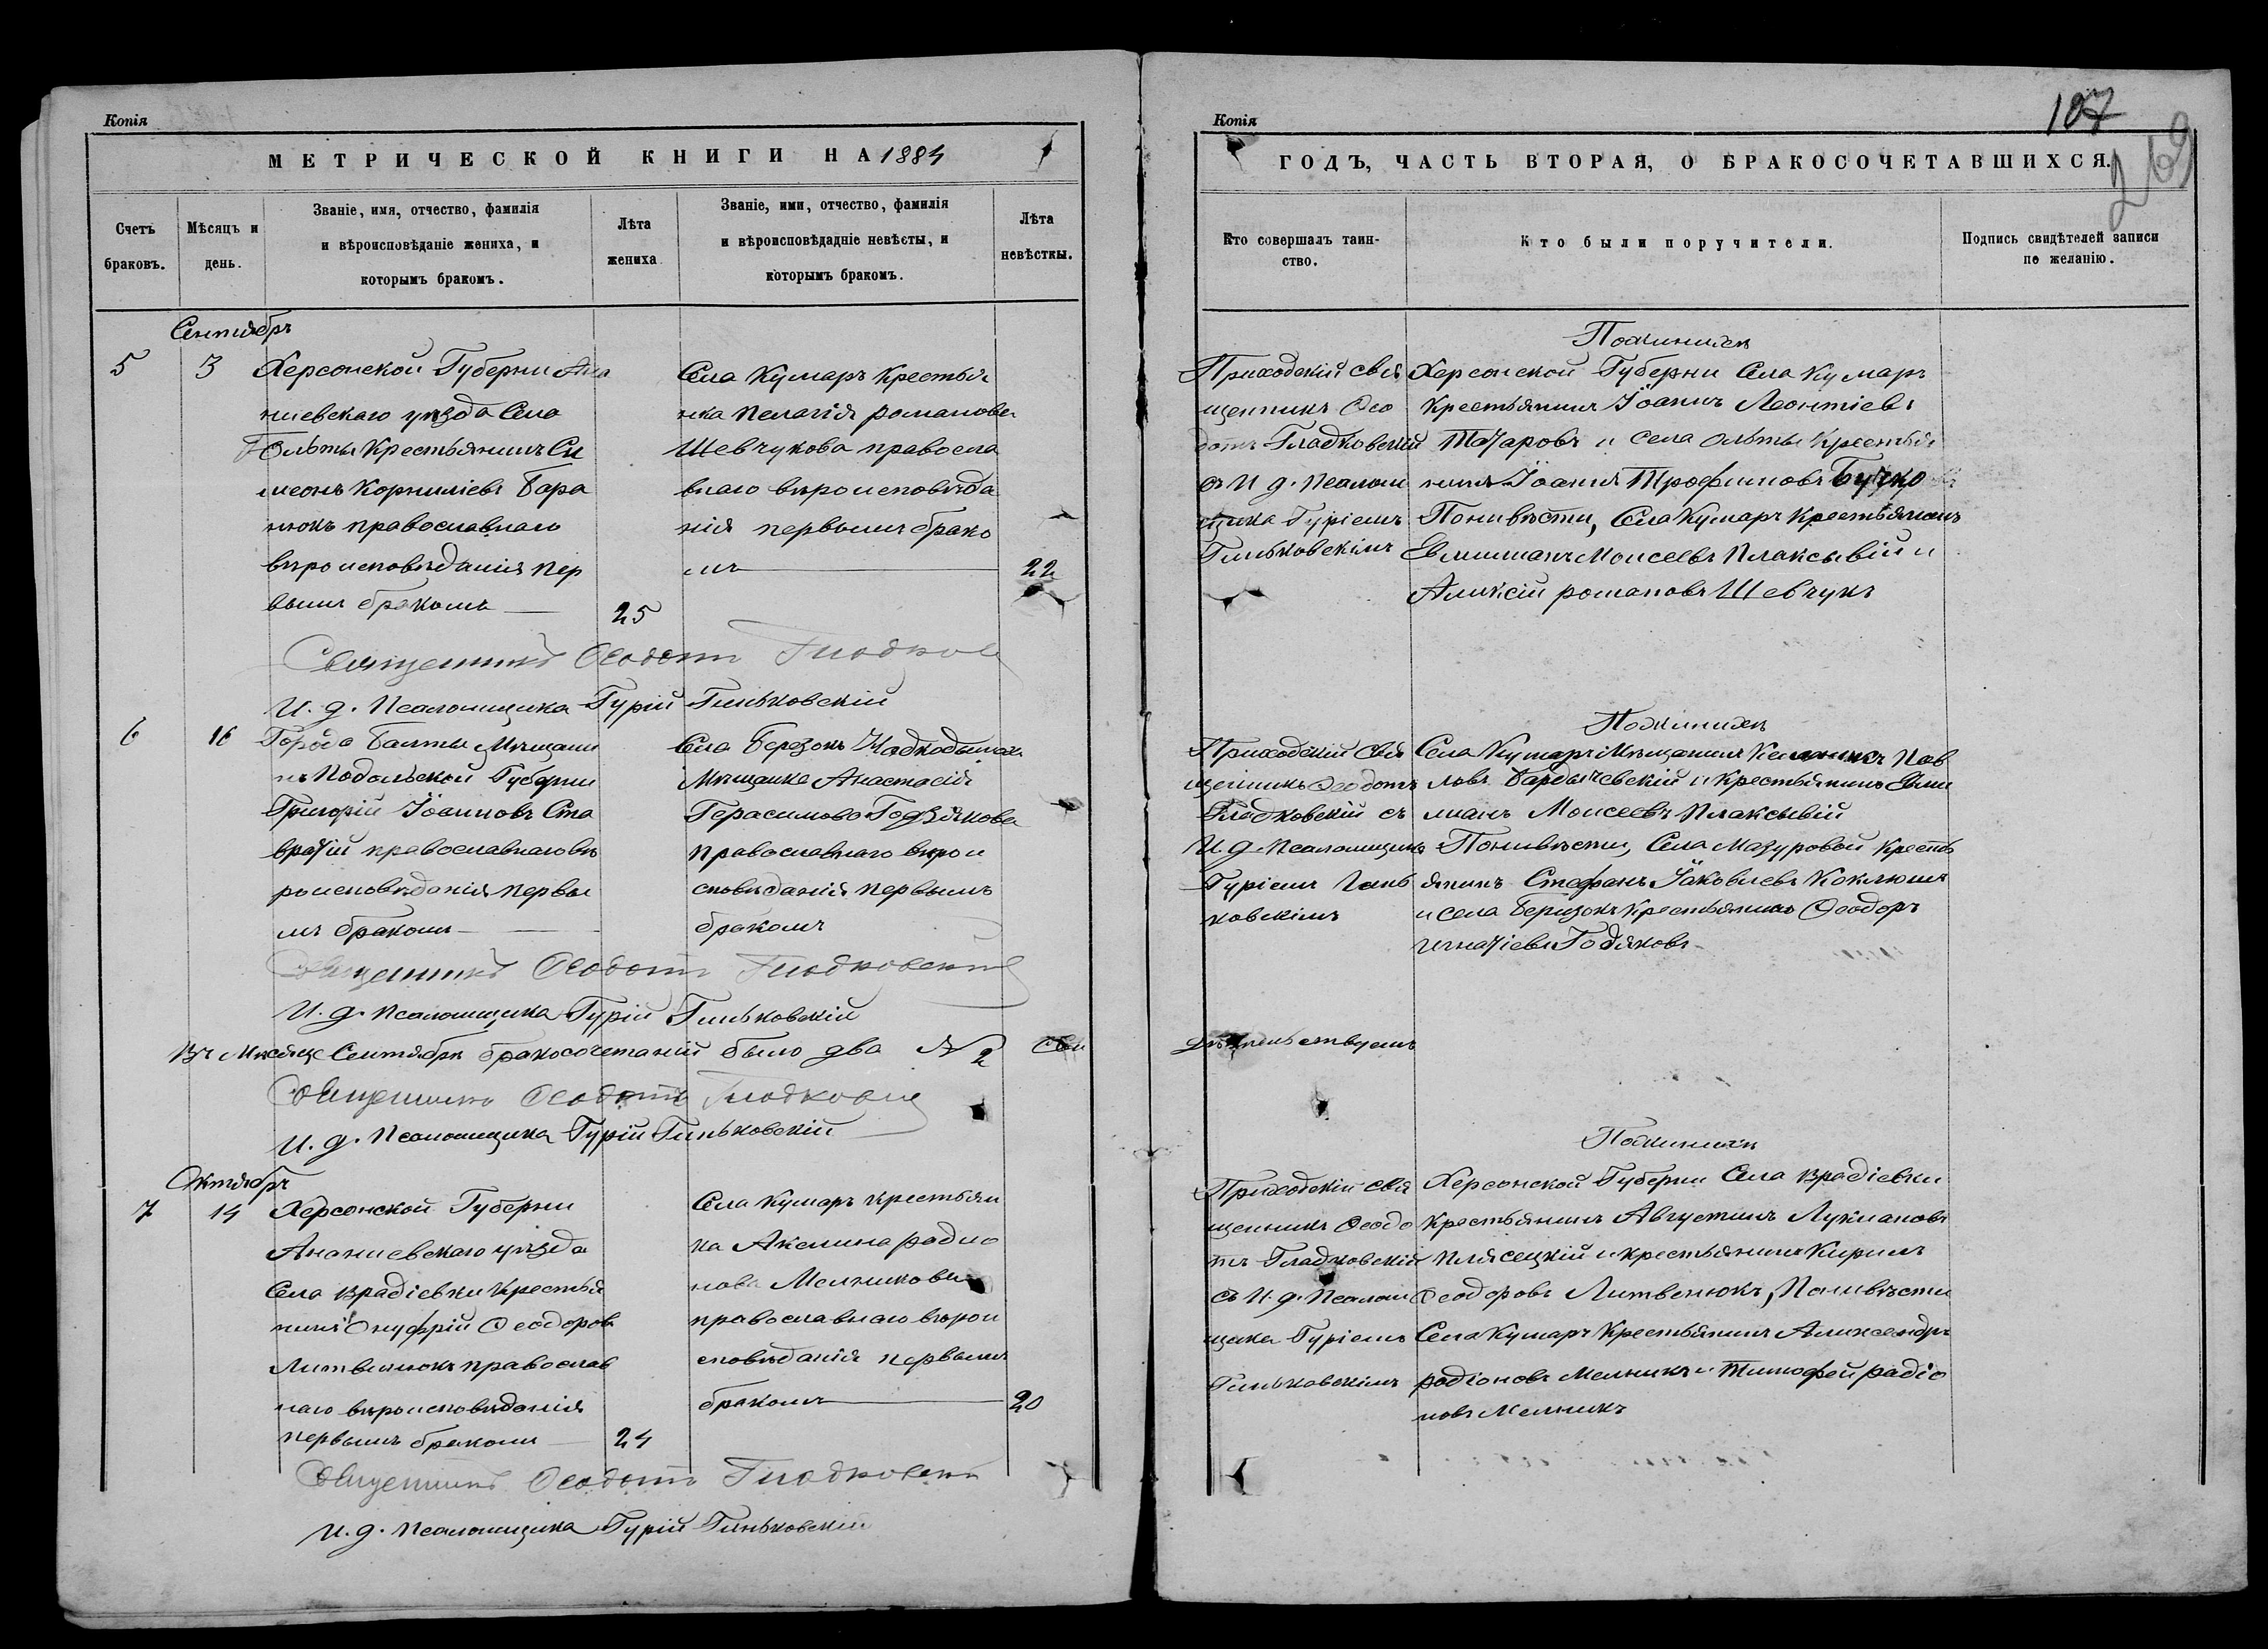 Копія
МЕТРИЧЕСКОЙ КНИГИ НА 1884
Счетъ браковъ.
Мѣсяцъ и день.
Званіе, имя, отчество, фамилія
и вѣроисповѣданіе жениха, и
которымъ бракомъ.
Лѣта
жениха
Званіе, ими, отчество, фамилія
и вѣроисповѣдадніе невѣсты, и
которымъ бракомъ.
Лѣта
невѣсткы.
Сентябрь
5
3
Херсонской Губерни Ана
ниевскаго уѣзда Села
Ольты Крестьянинъ Си
меонъ Корниліевъ Бара
нюкъ православнаго
вѣроисповѣданія пер
вымъ бракомъ
25
Села Кумаръ Крестья
нка Пелагія романова
Шевчукова правосла
внаго вѣроисповѣда
нія первымъ брако
мъ
22
Священникъ Ѳеодотъ
И. д. Псаломщика Гурій Гиньковскій
6
16
Города Балты Мѣщани
нъ Подольской Губерни
Григорій Іоанновъ Ста
православнаго вѣ
роисповѣданія первы
мъ бракомъ
Села Березокъ
Мѣщанка Анастасія
Герасимова Годзякова
православнаго вѣрои
сповѣданія первымъ
бракомъ
Священникъ Ѳеодотъ Гладковскій
И. д. Псаломщика Гурій Гиньковскій
Въ Мѣсяцѣ Сентябрѣ бракосочетаній было два № 2 Сви
Священникъ Ѳеодотъ
И. д. Псаломщика Гурій Гиньковскій
Октябрь
7
14
Херсонской Губерни
Ананиевскаго уѣзда
Села врадіевки Крестья
нинъ Онуфрій Ѳеодоровъ
Литвинюкъ православ
наго вѣроисповѣданія
первымъ бракомъ
24
Села Кумаръ крестьян
ка Акелина радио
нова Мельникова
православнаго вѣрои
сповѣданія первымъ
бракомъ
20
Священникъ Ѳеодотъ Гладковскій
И. д. Псаломщика Гурій Гиньковскій
Копія
107
269
ГОДЪ, ЧАСТЬ ВТОРАЯ, О БРАКОСОЧЕТАВШИХСЯ.
Кто совершалъ таин-
ство.
Кто были поручители.
Подпись свидѣтелей записи
по желанію.
Приходскій свя
щенникъ Ѳео
дотъ Гладковскій
съ И д. Псалом
щика Гуріемъ
Гиньковскимъ
По женихѣ
Херсонской Губерни Села Кумаръ
крестьянинъ Іоаннъ Леонтіевъ
и села Ольты Крестья
нинъ Іоаннъ Трофимовъ Бучко
По невѣсти, Села Кумаръ Крестьянинъ
Моисеевъ Плаксывій и
Аликсій романовъ Шевчукъ
Приходскій Свя
щенникъ Ѳеодотъ
Гладковскій съ
И. д. Псаломщика
Гуріемъ Гинь
ковскимъ
По женихѣ
Села Кумаръ Мѣщанинъ Пав
ловъ Бардычевскій и Крестьянинъ
Моисеевъ Плаксывій
По невѣсти, Села Мазуровой Кресть
янинъ Стефанъ Іаковлевъ Коклюшъ
и села Березокъ Крестьянинъ Ѳеодоръ
Годзяковъ
дѣтельствуемъ
Приходскій свя
щенникъ Ѳеодо
тъ Гладковскій
съ И. д. Псалом
щика Гуріемъ
Гиньковскимъ
По женихѣ
Херсонской Губерни Села врадіевки
крестьянинъ Августинъ Лукіановъ
Плясецкій и крестьянинъ Кирилъ
Ѳеодоровъ Литвенюкъ, По невѣсти
Села Кумаръ Крестьянинъ Александръ
родіоновъ Мельникъ и Тимофей радіо
новъ Мельникъ